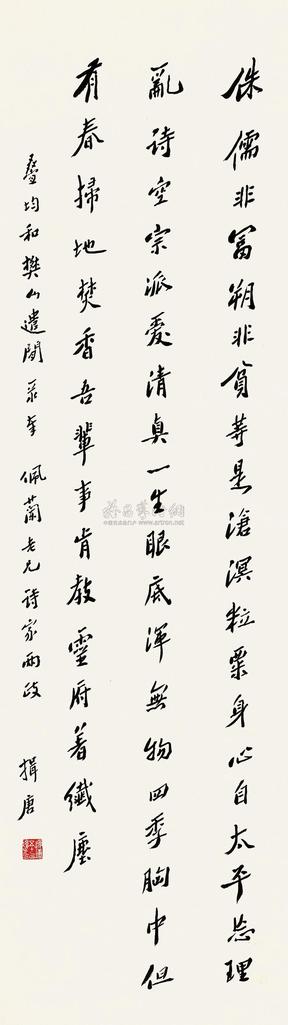 侏儒非富朔非貧等是滄溟粒粟身心自太平忘理
亂詩空宗派愛清真一生眼底渾無物四季胸中但
有春掃地焚香吾輩事肯教靈府著纖塵
疊均和樊山遣閒之作 佩蘭老兄詩家兩政 揖唐